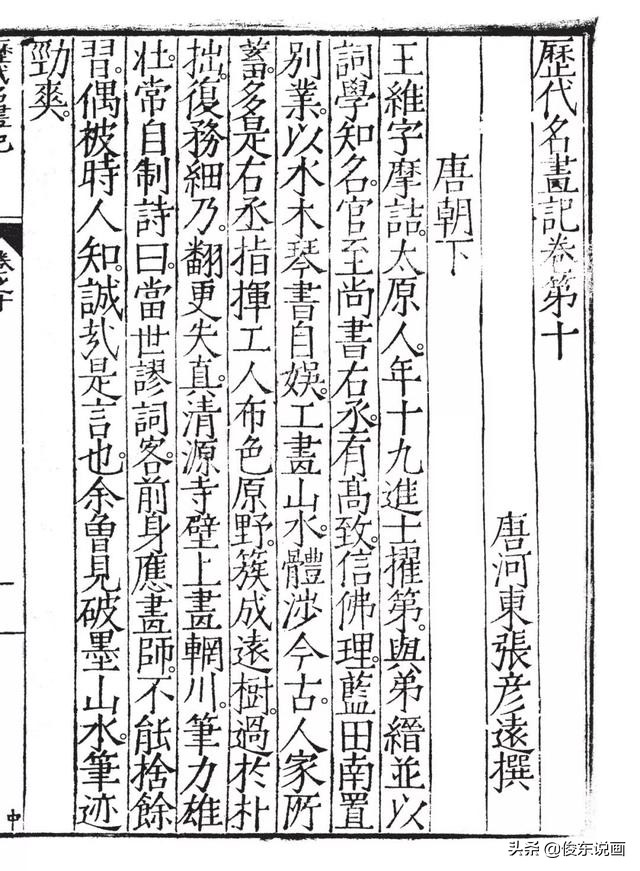 歷代名畫記卷第十
唐河東張彥遠撰
唐朝下
王維字摩詰。太原人。年十九進士擢第。與弟縉並以
詞學知名。官至尚書右丞。有高致。信佛理。藍田南置
別業。以水木琴書自娛。工畫山水。體涉今古。人家所
蓄。多是右丞指揮工人布色。原野。簇成遠樹。過於朴
拙。復務細乃。翻更失真。清源寺壁上畫輞川。筆力雄
壯。常自制詩曰。當世謬詞客。前身應畫師。不能捨餘
習。偶被時人知。誠哉是言也。余曾見破墨山水。筆迹
勁爽。
歷代名畫記
卷之十
中
头条 @俊东说画